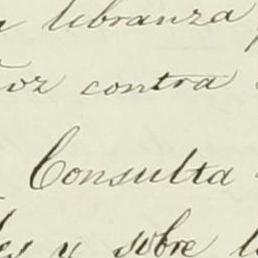 libranza
contra
Consulta
y sobre